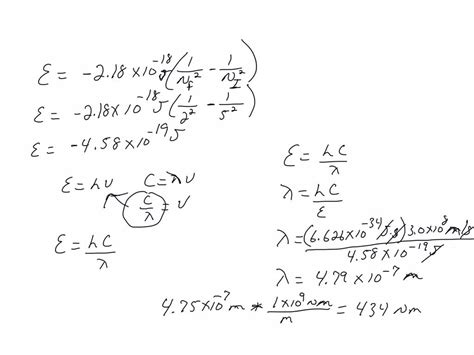 E = -2.18×10^-18 J (1/N_f^2 - 1/N_I^2)
E = -2.18×10^-18 J (1/2^2 - 1/5^2)
E = -4.58×10^-19 J
E = hν C = λν
C/λ = ν
E = hC/λ
E = hC/λ
λ = hC/E
λ = (6.626×10^-34 J·s) 3.0×10^8 m/s / 4.58×10^-19 J
λ = 4.79×10^-7 m
4.75×10^-7 m * 1×10^9 Nm/m = 434 Nm